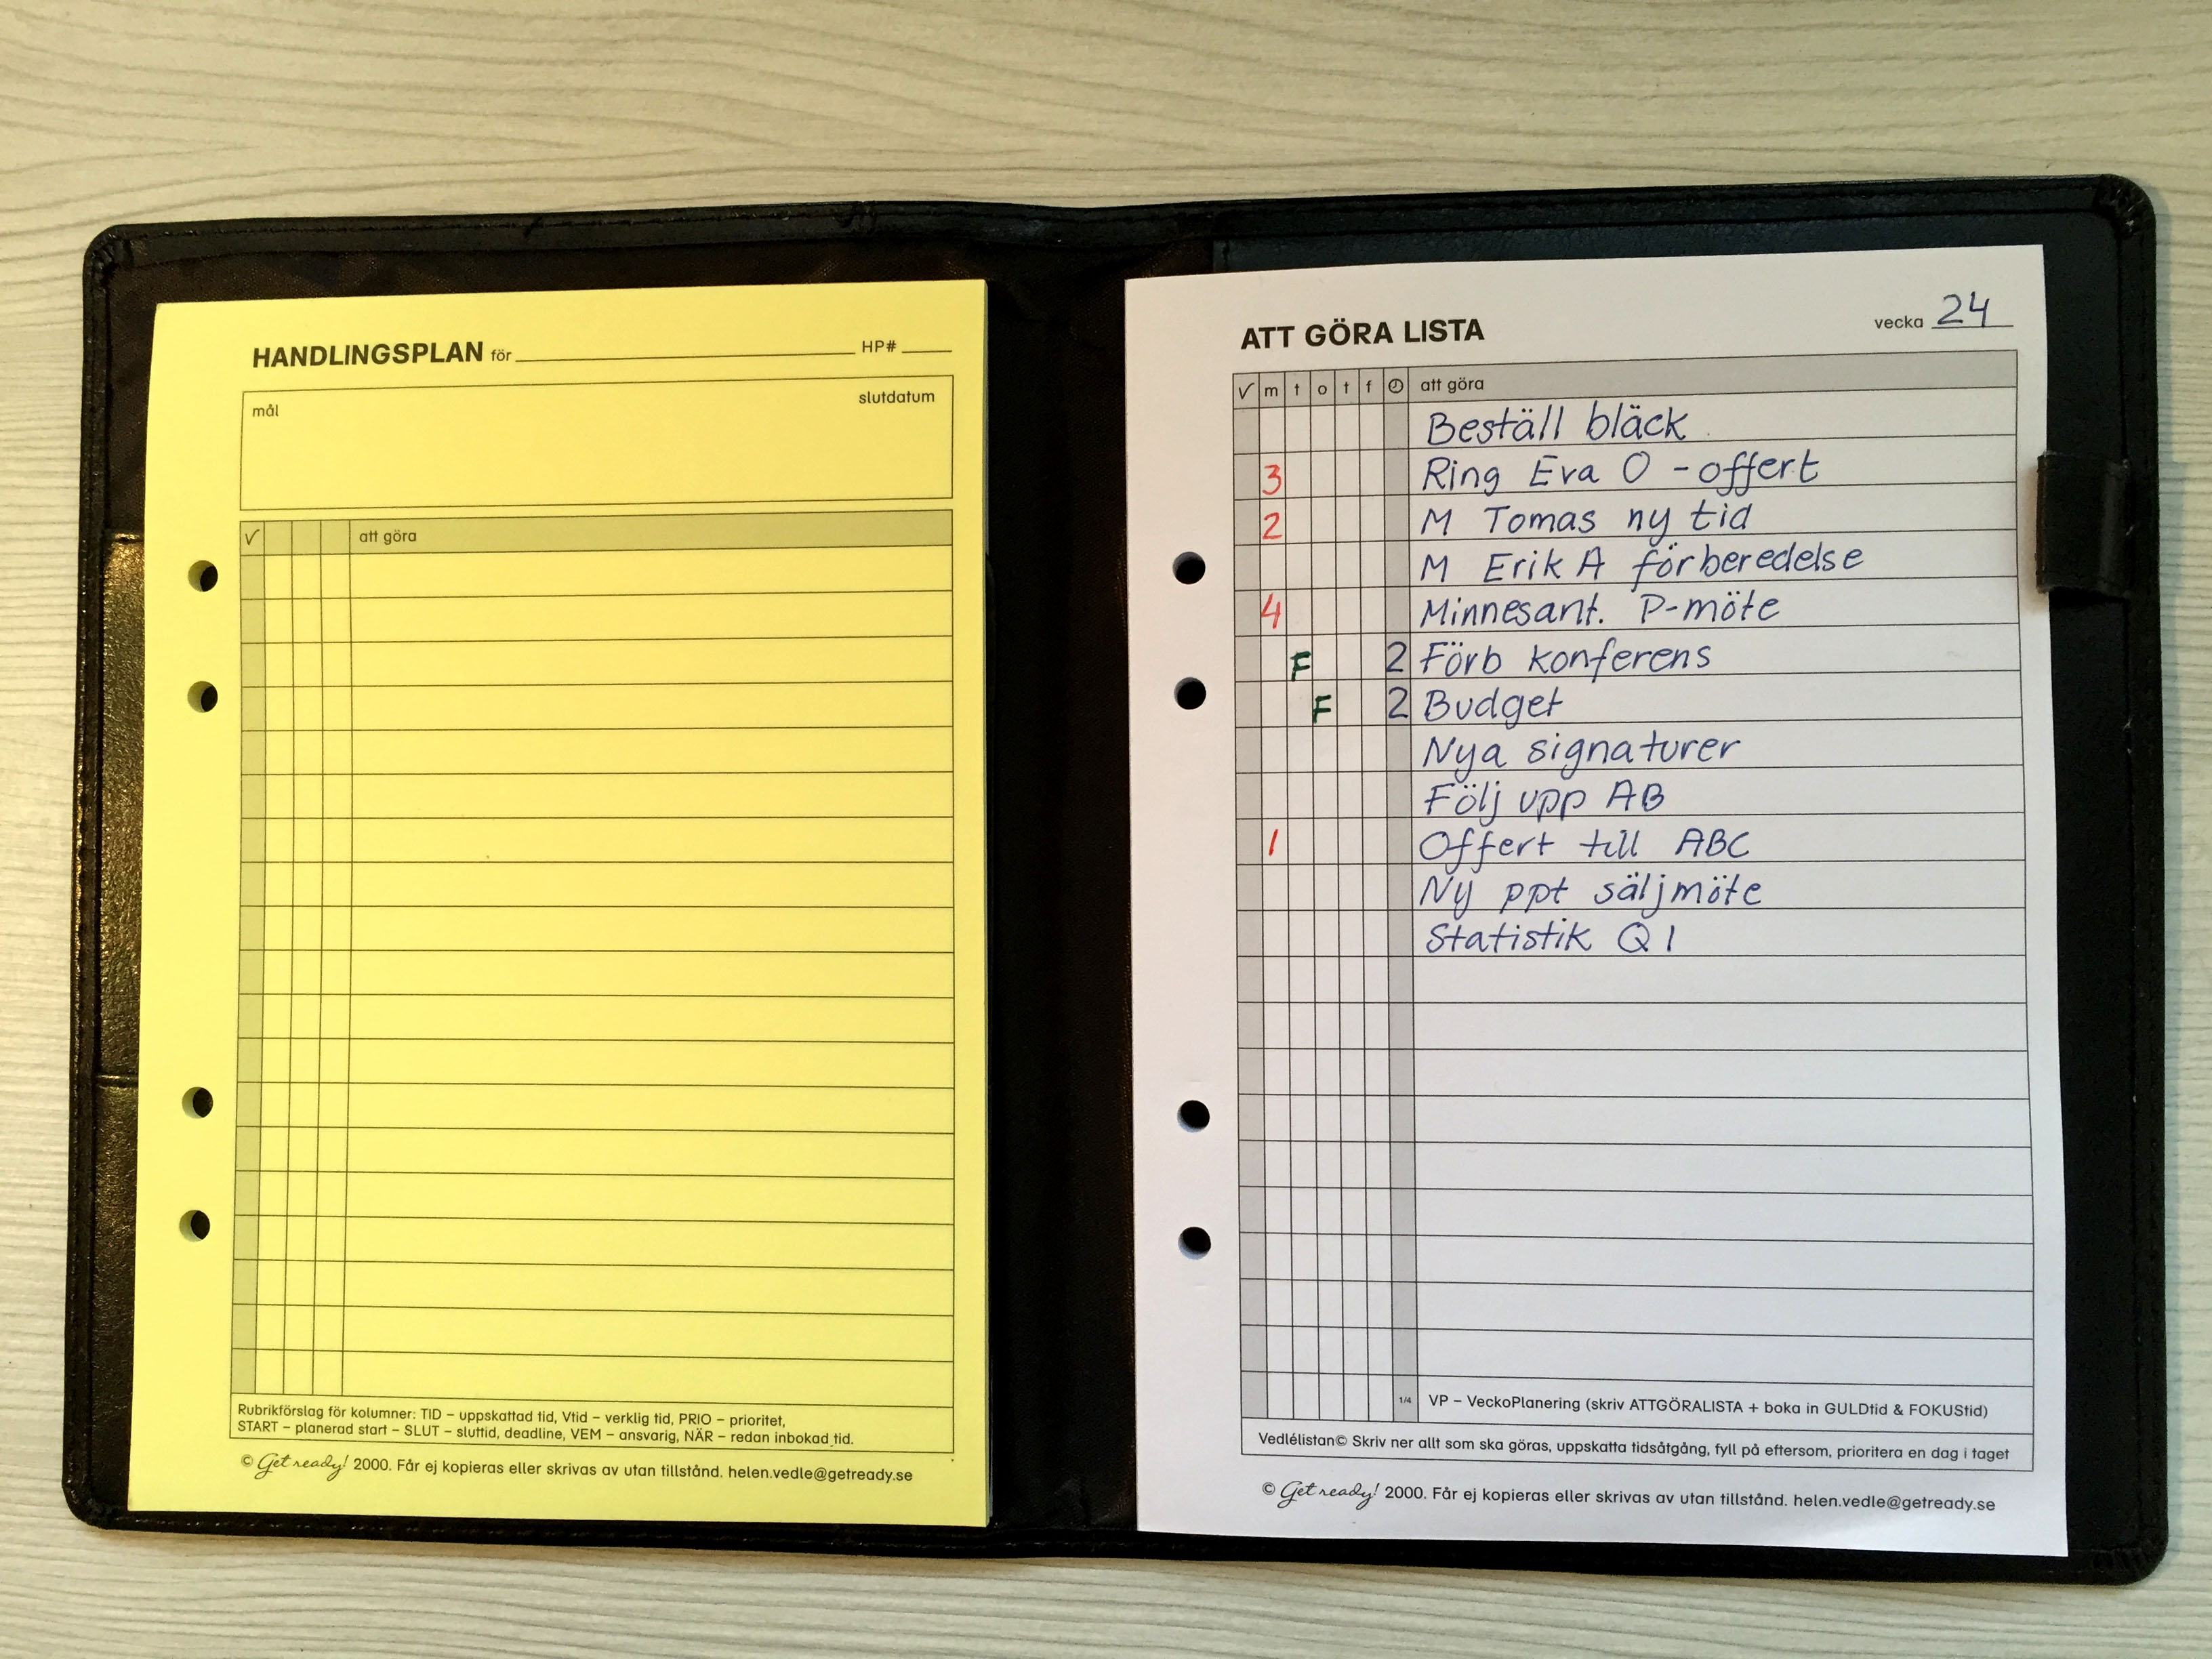 HANDLINGSPLAN för HP#
mål slutdatum
✓ att göra
Rubrikförslag för kolumner: TID – uppskattad tid, Vtid – verklig tid, PRIO – prioritet,
START – planerad start – SLUT – sluttid, deadline, VEM – ansvarig, NÄR – redan inbokad tid.
© Get ready! 2000. Får ej kopieras eller skrivas av utan tillstånd. helen.vedle@getready.se
ATT GÖRA LISTA vecka 24
✓ m t o t f att göra
Beställ bläck
3 Ring Eva O - offert
2 M Tomas ny tid
M Erik A förberedelse
4 Minnesant. P-möte
F 2 Förb konferens
F 2 Budget
Nya signaturer
Följ upp AB
1 Offert till ABC
Ny ppt säljmöte
Statistik Q1
1/4 VP – VeckoPlanering (skriv ATTGÖRALISTA + boka in GULDtid & FOKUStid)
Vedlélistan© Skriv ner allt som ska göras, uppskatta tidsåtgång, fyll på eftersom, prioritera en dag i taget
© Get ready! 2000. Får ej kopieras eller skrivas av utan tillstånd. helen.vedle@getready.se